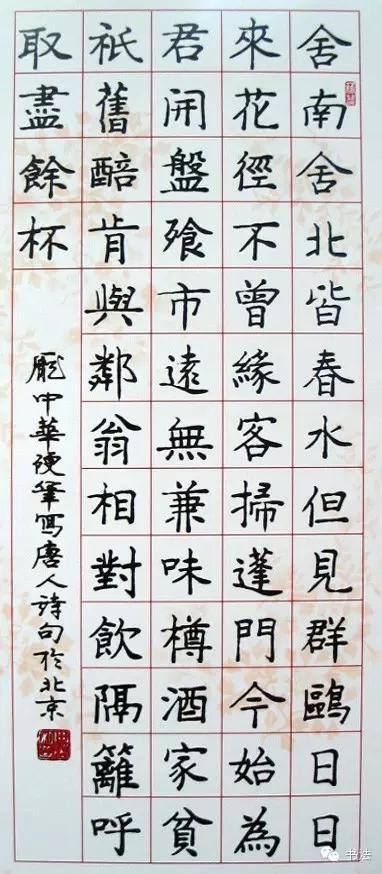 舍南舍北皆春水但見群鷗日日
來花徑不曾緣客掃蓬門今始為
君開盤飱市遠無兼味樽酒家貧
祇舊醅肯與鄰翁相對飲隔籬呼
取盡餘杯
龐中華硬筆寫唐人詩句於北京
书法